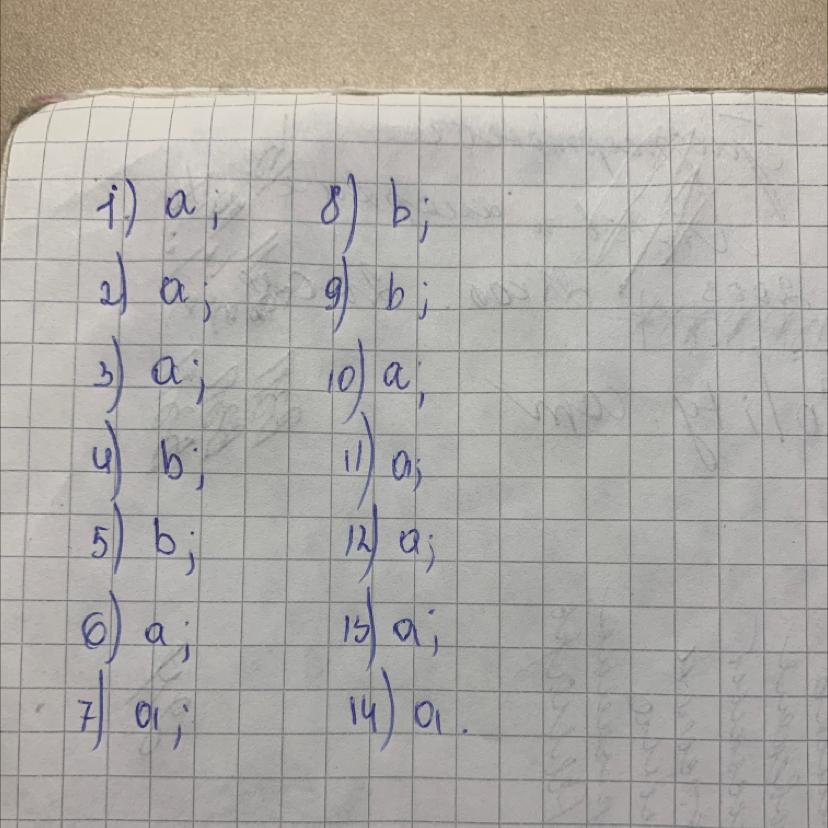 1) a;
2) a;
3) a;
4) b;
5) b;
6) a;
7) a;
8) b;
9) b;
10) a;
11) a;
12) a;
13) a;
14) a.